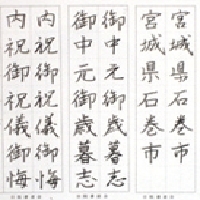 宮城県石巻市
宮城県石巻市
御中元御歳暮志
御中元御歳暮志
内祝御祝儀御悔
内祝御祝儀御悔